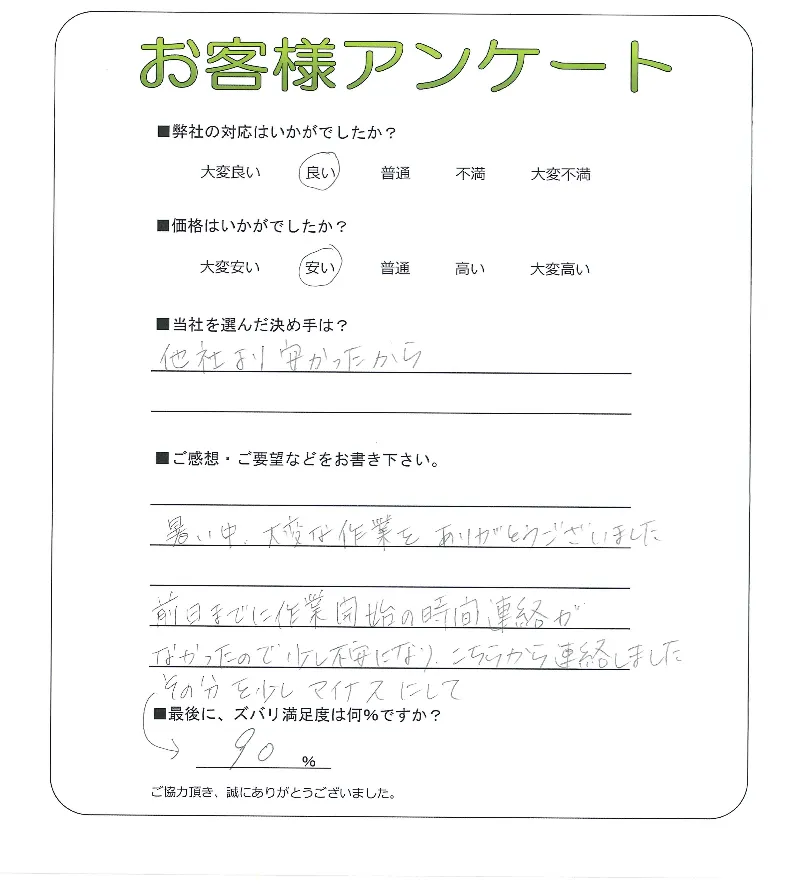 お客様アンケート
■弊社の対応はいかがでしたか？
大変良い 良い 普通 不満 大変不満
■価格はいかがでしたか？
大変安い 安い 普通 高い 大変高い
■当社を選んだ決め手は？
他社より安かったから
■ご感想・ご要望などをお書き下さい。
暑い中、大変な作業を ありがとうございました
前日までに作業開始の時間連絡が
なかったので少し不安になり、こちらから連絡しました
その分を少し マイナスにして
■最後に、ズバリ満足度は何%ですか？
90 %
ご協力頂き、誠にありがとうございました。